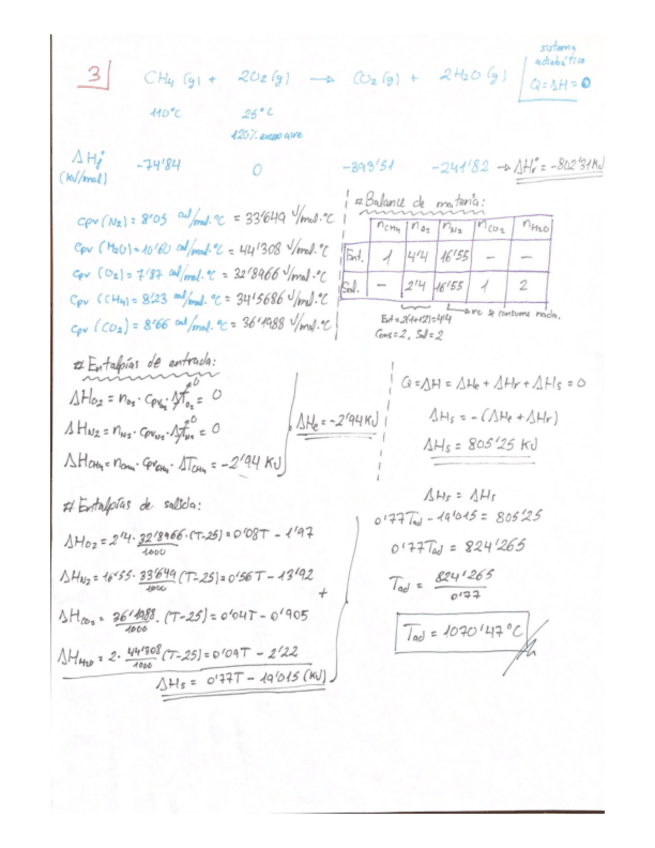 3 CH4 (g) + 2O2 (g) → CO2 (g) + 2H2O (g)
sistema
adiabático
Q = ΔH = 0
110°C 25°C
120% exceso aire
ΔHf° -74'84 0 -393'51 -241'82 → ΔHr° = -802'31 KJ
(KJ/mol)
Cpv (N2) = 8'05 cal/mol·°C = 33'649 J/mol·°C
Cpv (H2O) = 10'60 cal/mol·°C = 44'308 J/mol·°C
Cpv (O2) = 7'87 cal/mol·°C = 32'8966 J/mol·°C
Cpv (CH4) = 8'23 cal/mol·°C = 34'5686 J/mol·°C
Cpv (CO2) = 8'66 cal/mol·°C = 36'1988 J/mol·°C
# Balance de materia:
nCH4 nO2 nN2 nCO2 nH2O
Ent. 1 4'4 16'55 - -
Sal. - 2'4 16'55 1 2
Ent = 2(1+1'2) = 4'4
Cons = 2, Sal = 2
→ no se consume nada.
# Entalpías de entrada:
ΔHO2 = nO2 · CpvO2 · ΔTO2 = 0
ΔHN2 = nN2 · CpvN2 · ΔTN2 = 0
ΔHCH4 = nCH4 · CpvCH4 · ΔTCH4 = -2'94 KJ
ΔHe = -2'94 KJ
# Entalpías de salida:
ΔHO2 = 2'4 · 32'8966/1000 · (T-25) = 0'08T - 1'97
ΔHN2 = 16'55 · 33'649/1000 (T-25) = 0'56T - 13'92
+
ΔHCO2 = 36'1988/1000 · (T-25) = 0'04T - 0'905
ΔHH2O = 2 · 44'308/1000 (T-25) = 0'09T - 2'22
ΔHs = 0'77T - 19'015 (KJ)
Q = ΔH = ΔHe + ΔHr + ΔHs = 0
ΔHs = -(ΔHe + ΔHr)
ΔHs = 805'25 KJ
ΔHs = ΔHs
0'77Tad - 19'015 = 805'25
0'77Tad = 824'265
Tad = 824'265/0'77
Tad = 1070'47°C